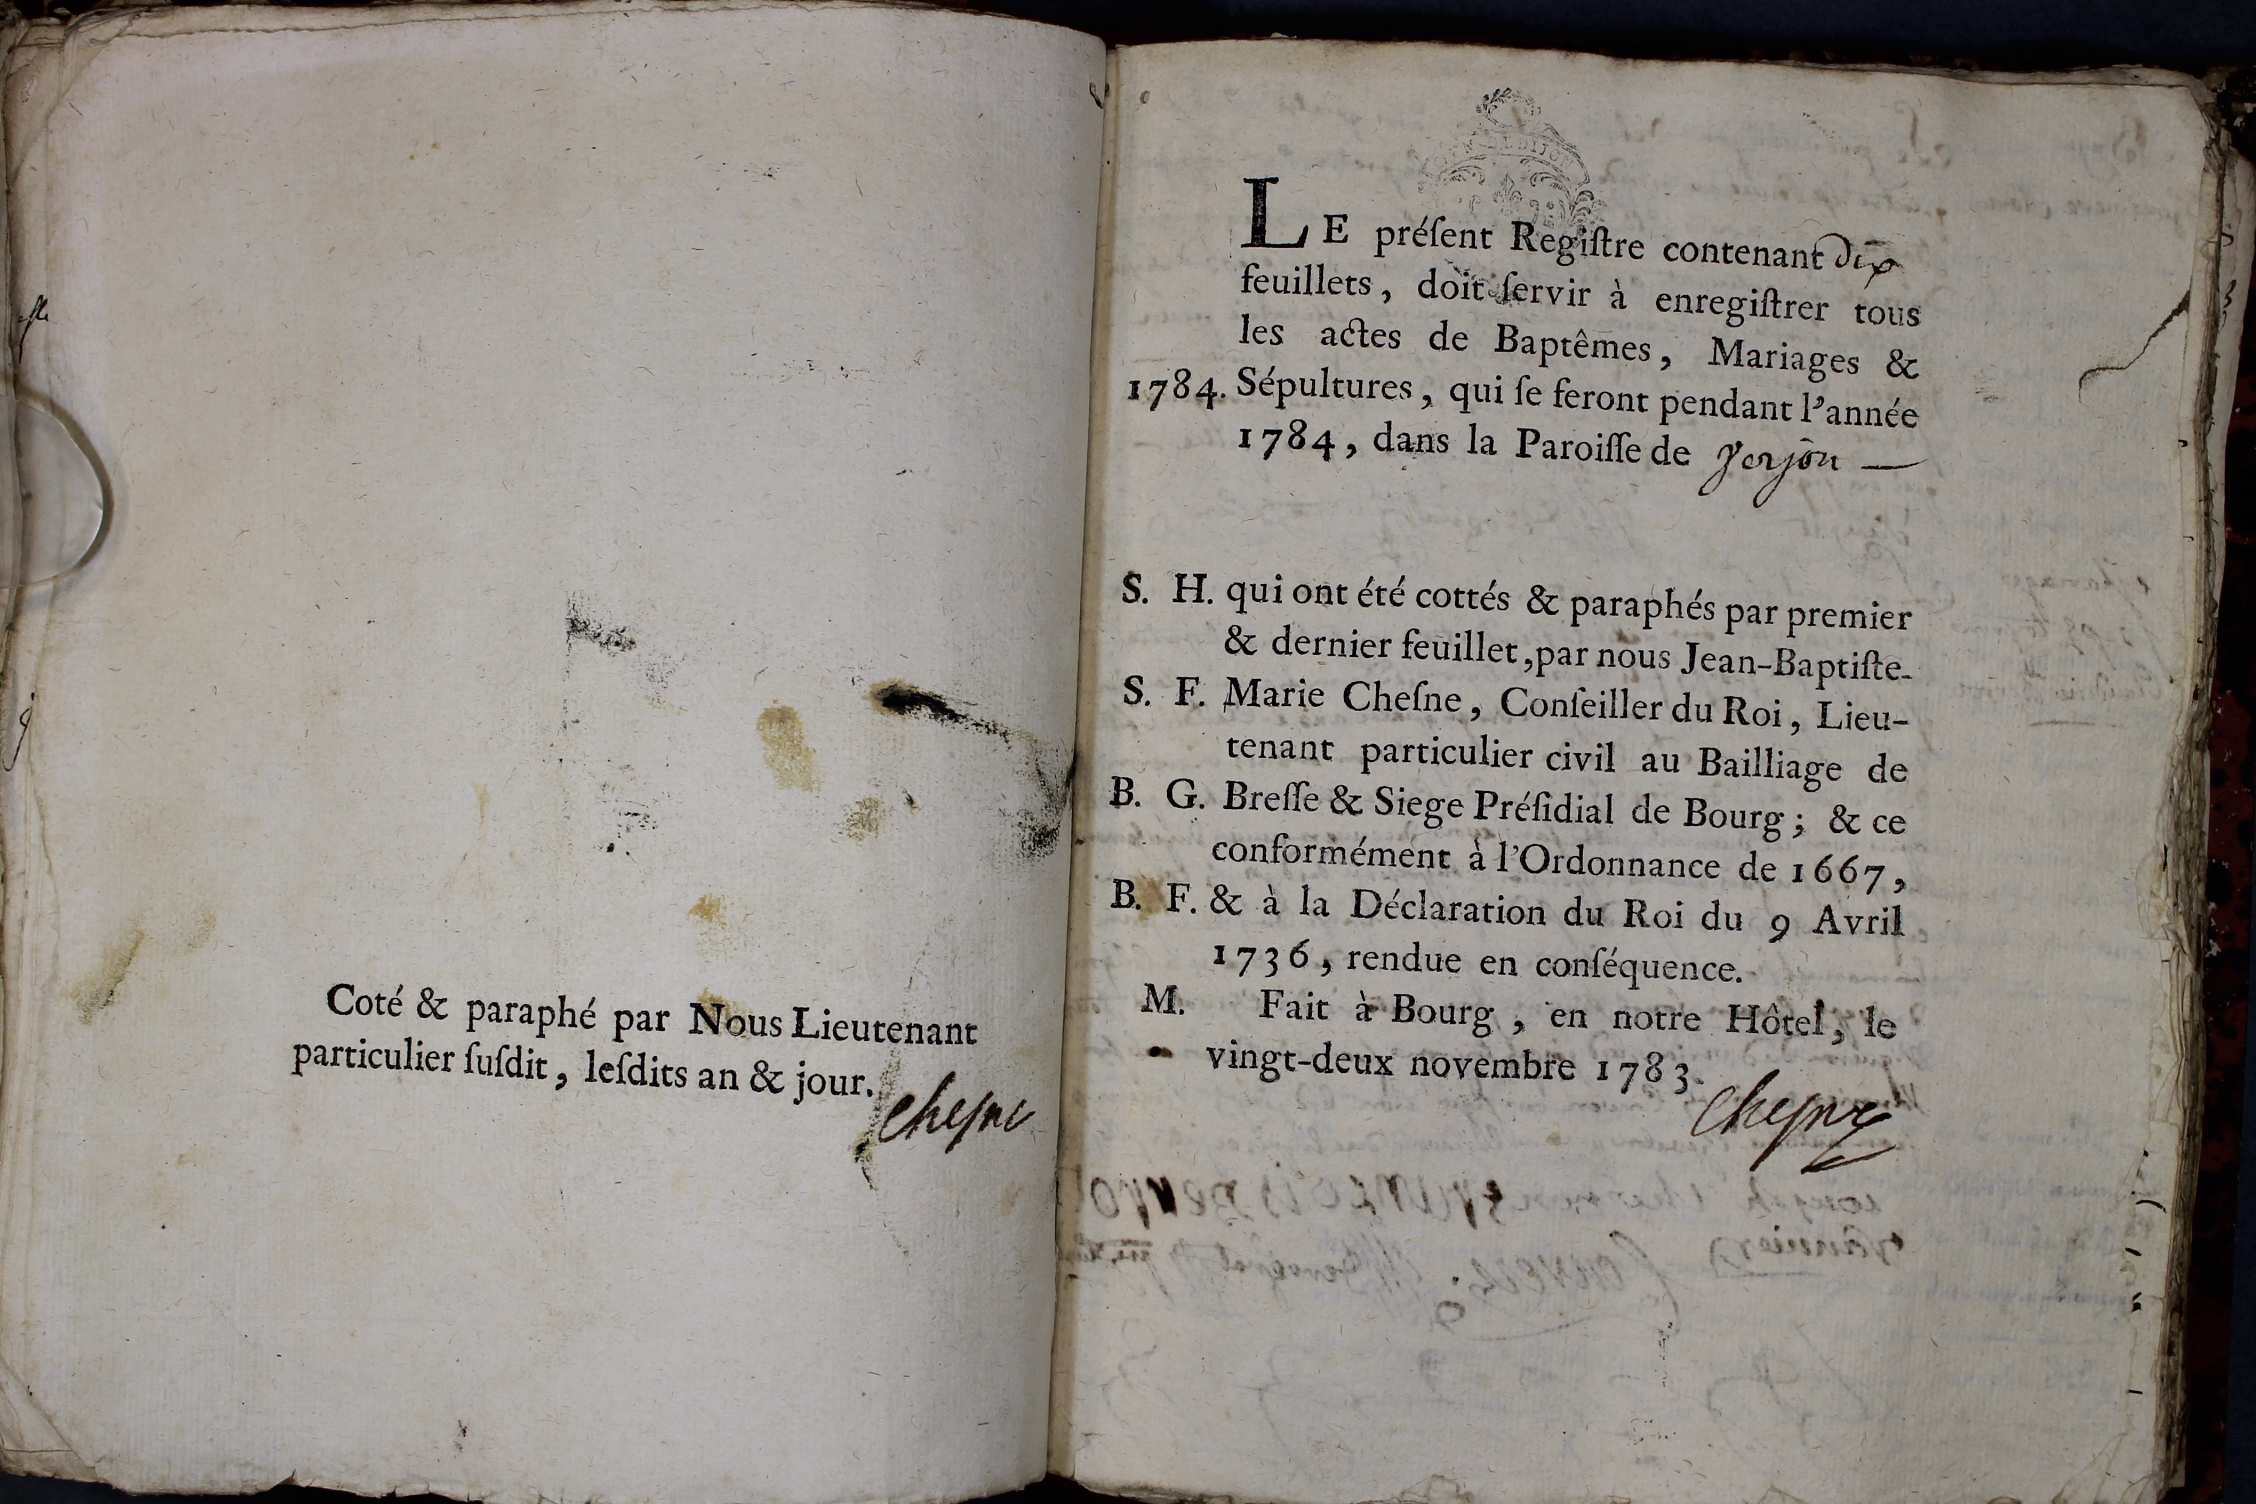 Coté & paraphé par Nous Lieutenant
particulier ſuſdit, leſdits an & jour.
Cheſne
LE préſent Regiſtre contenant dix
feuillets, doit ſervir à enregiſtrer tous
les actes de Baptêmes, Mariages &
1784. Sépultures, qui ſe feront pendant l'année
1784, dans la Paroiſſe de Verjon —
S. H. qui ont été cottés & paraphés par premier
& dernier feuillet, par nous Jean-Baptiſte-
S. F. Marie Cheſne, Conſeiller du Roi, Lieu-
tenant particulier civil au Bailliage de
B. G. Breſſe & Siege Préſidial de Bourg; & ce
conformément à l'Ordonnance de 1667,
B. F. & à la Déclaration du Roi du 9 Avril
1736, rendue en conſéquence.
M. Fait à Bourg, en notre Hôtel, le
vingt-deux novembre 1783.
Cheſne